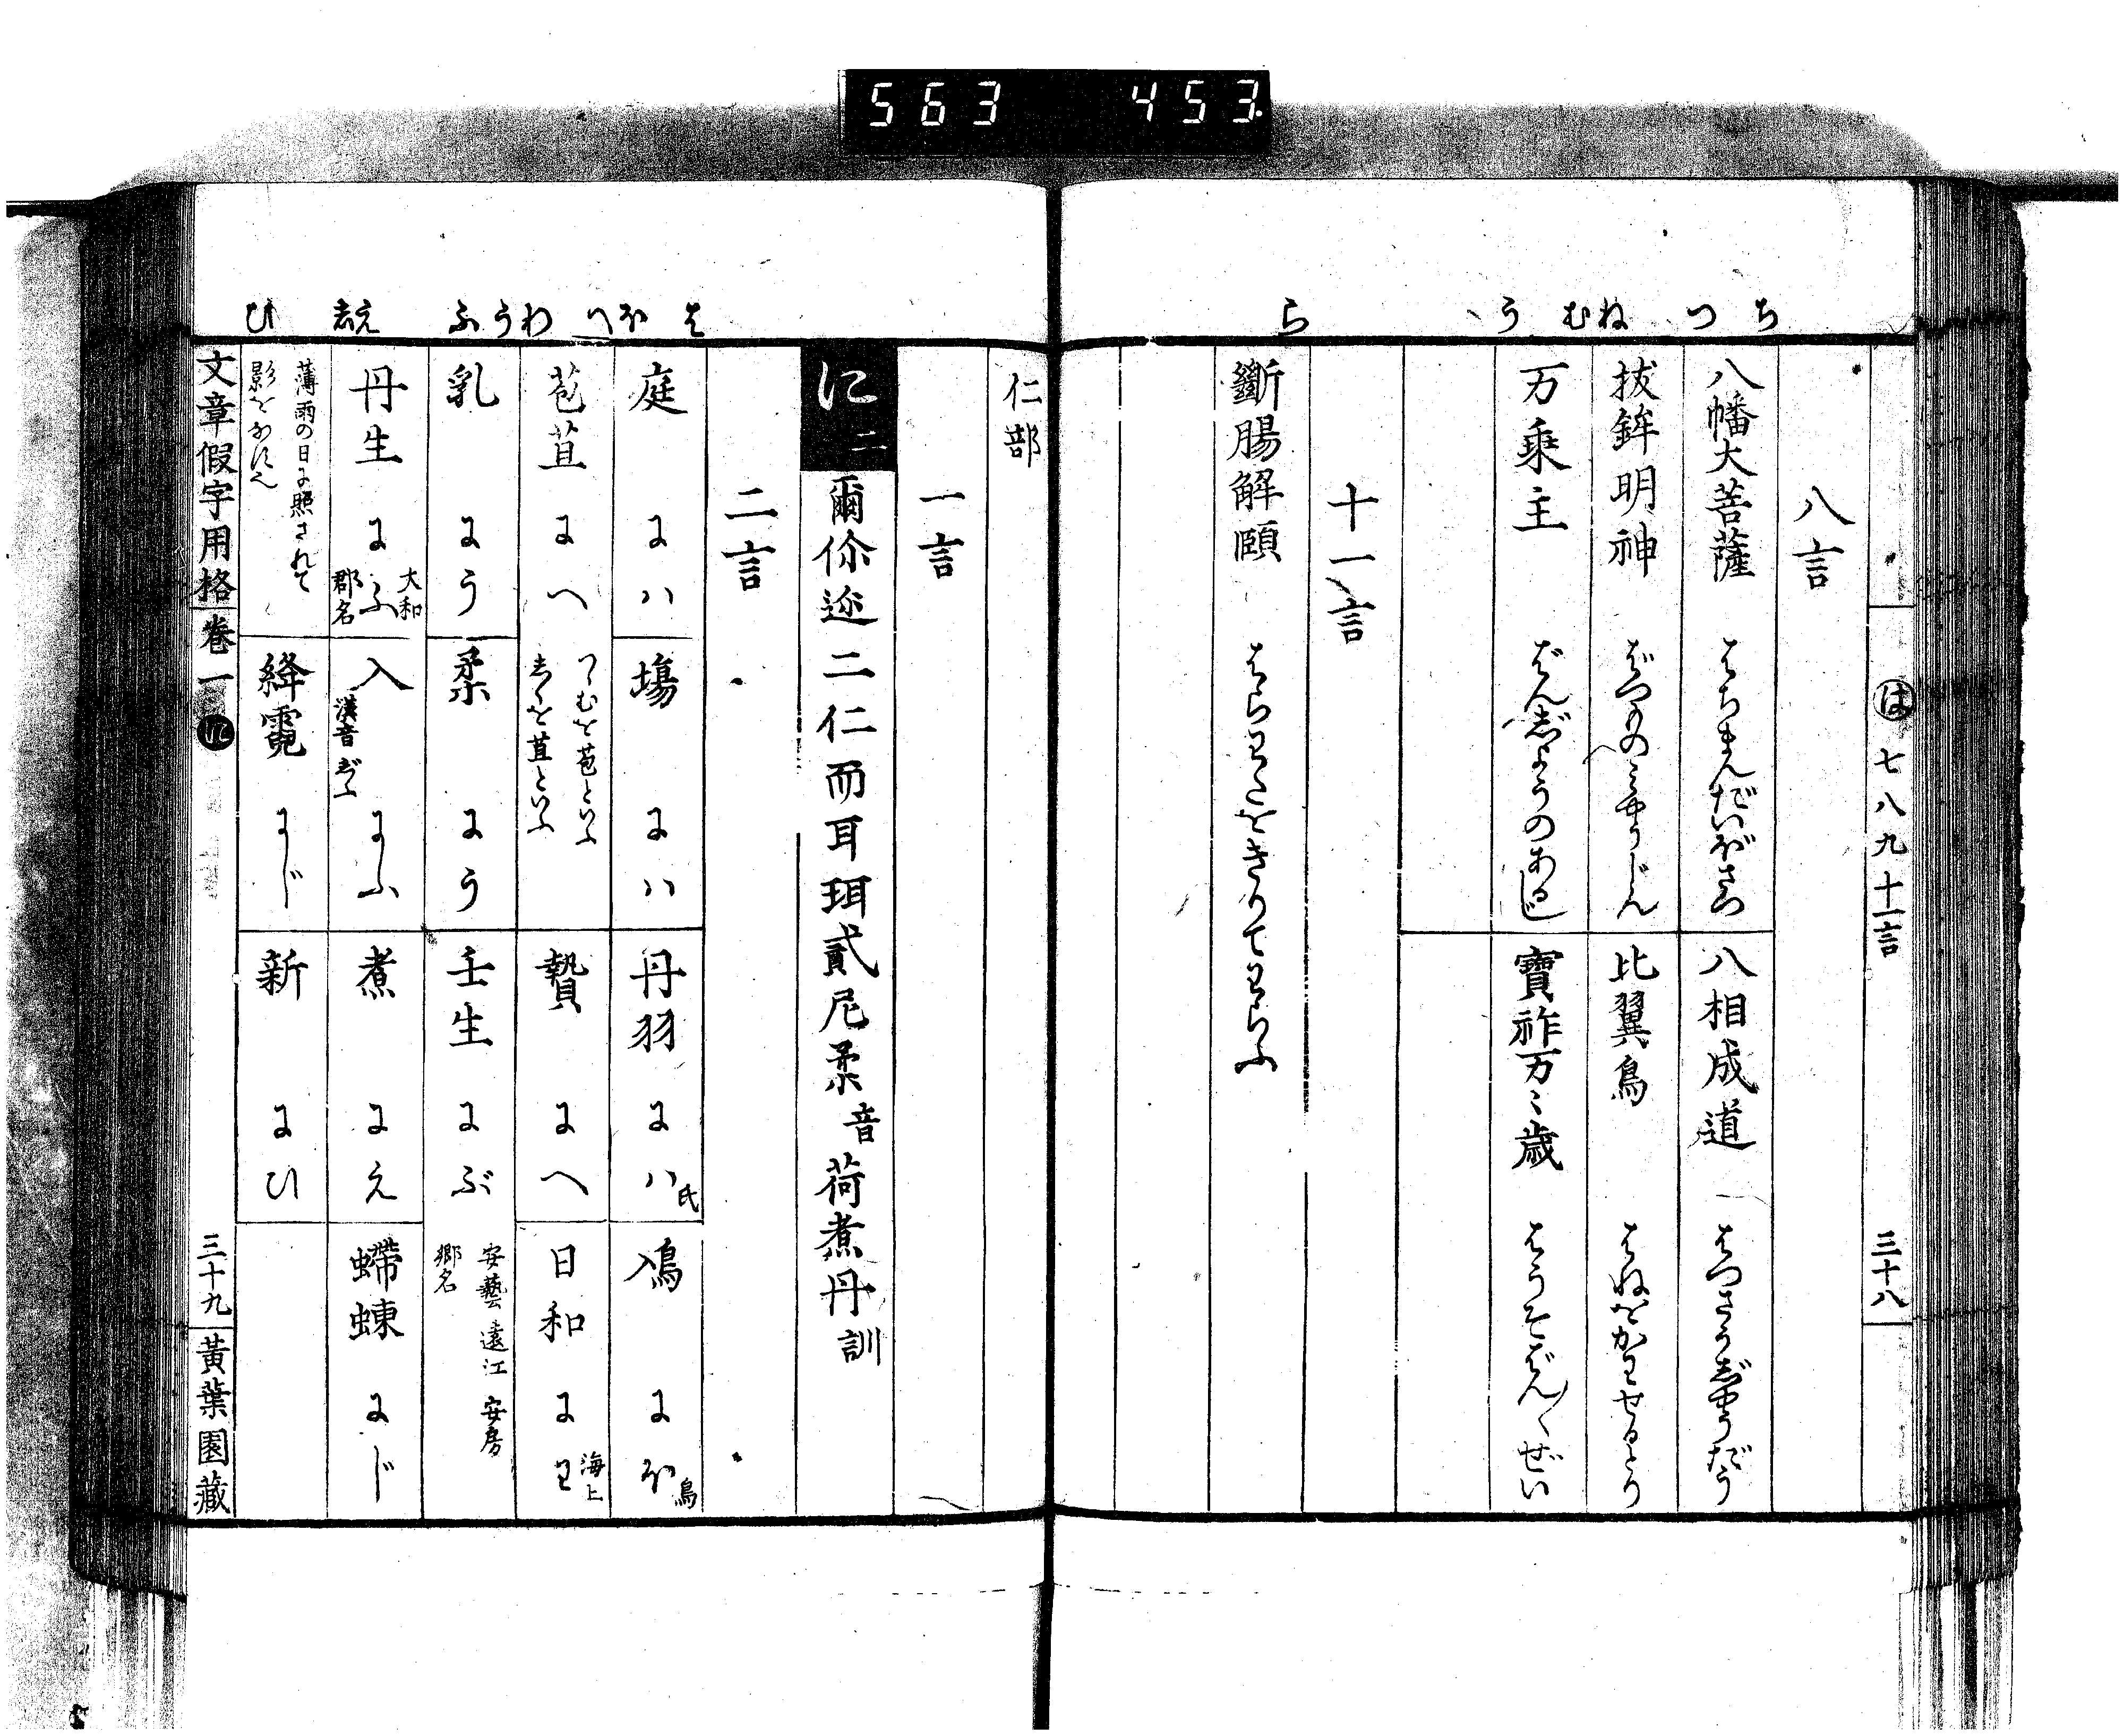 563 453
ち つ ねむ う ら
は 七八九十一言 三十八
八言
八幡大菩薩 はちまんだいぼさつ
八相成道 はつさうじやうだう
抜鉾明神 ばつかのみやうじん
比翼鳥 はねをかわせるとり
万乘主 ばんじようのあるじ
寶祚万〻歳 はうそばん〳〵ぜい
十一言
斷膓解頤 はらわたをきりてわらふ
仁部
一言
に 二 爾你迩二仁而耳珥貳尼柔音荷煮丹訓
二言
は ほ へ わ う ふ え ひ
庭 にハ
塲 にハ
丹羽 にハ 氏
鳰 にほ 鳥
苞苴 にへ つゝむを苞といふ
しくを苴といふ
贄 にへ
日和 にわ 海上
乳 にう
柔 にう
壬生 にぶ 安藝 遠江 安房
郷名
丹生 にふ 大和
郡名
入 漢音じふ にふ
煮 にえ
蝃蝀 にじ
薄雨の日に照されて
影をなすなり
絳霓 にじ
新 にひ
文章假字用格 卷一 に 三十九 黄葉園藏